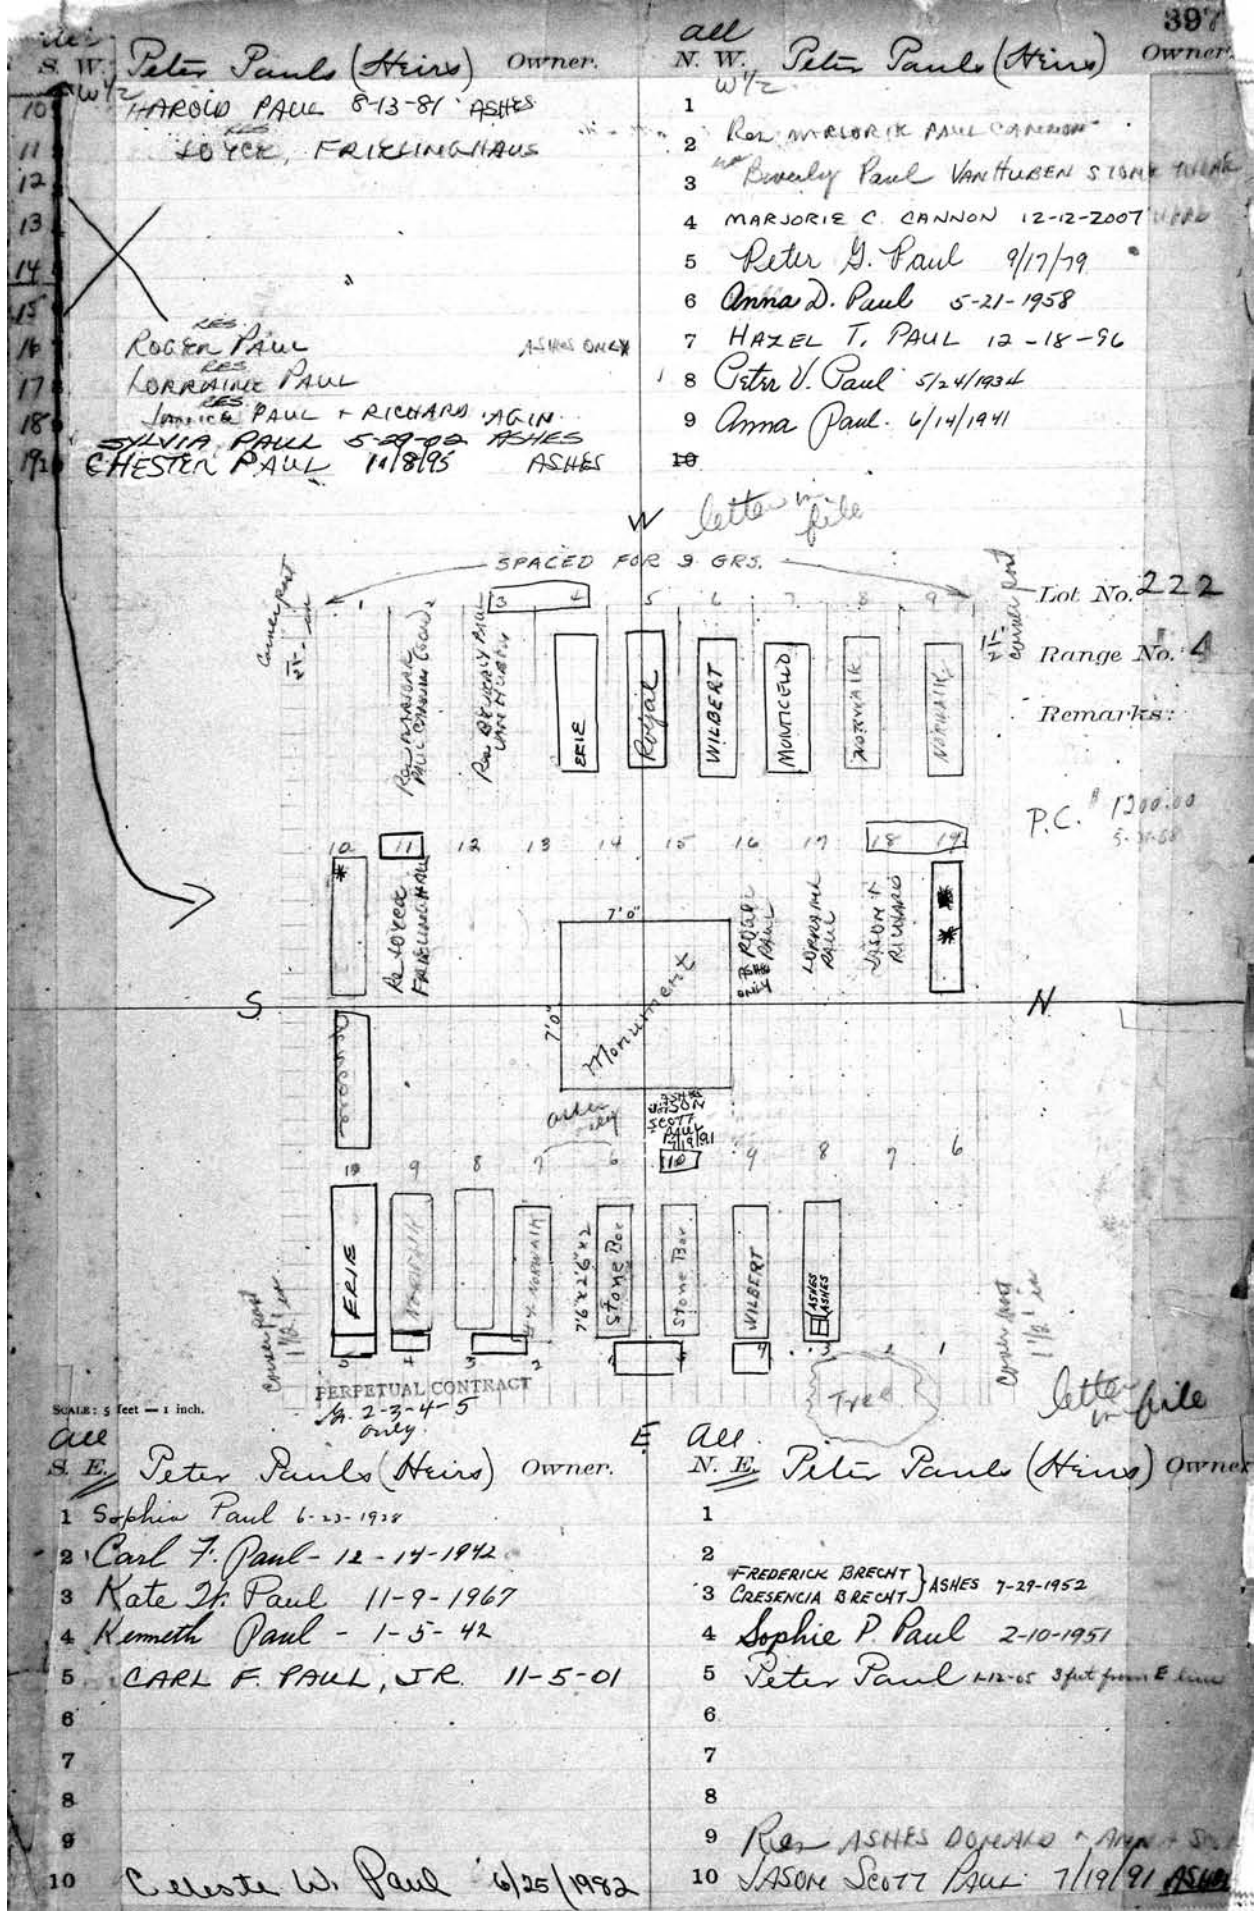 397
all
S. W. Peter Pauls (Heirs) Owner.
W 1/2
10 HAROLD PAUL 8-13-81 ASHES
RES
11 JOYCE, FRIELINGHAUS
12
13
14
15
RES.
16 ROGER PAUL ASHES ONLY
RES
17 LORRAINE PAUL
RES
18 PAUL + RICHARD AGIN
SYLVIA PAUL 5-29-02 ASHES
19 CHESTER PAUL 11/8/95 ASHES
all
N. W. Peter Pauls (Heirs) Owner.
W 1/2
1
2 Res MARJORIE PAUL CANNON
3 Beverly Paul VAN HUBEN STONE
4 MARJORIE C. CANNON 12-12-2007
5 Peter G. Paul 9/17/79
6 Anna D. Paul 5-21-1958
7 HAZEL T. PAUL 12-18-96
8 Peter V. Paul 5/24/1934
9 Anna Paul. 6/14/1941
10
W
letter in file
SPACED FOR 9 GRS.
Corner post
1 2 3 4 5 6 7 8 9
corner post
Lot No. 222
Range No. 4
Remarks:
Res MARJORIE PAUL CANNON
Res BEVERLY PAUL VAN HUBEN
ERIE
Royal
WILBERT
MONTICELLO
NORWALK
NORWALK
P.C. $1200.00
10 11 12 13 14 15 16 17 18 19
Re JOYCE FRIELINGHAUS
7'0"
7'0"
Monument
ROGER PAUL ASHES ONLY
LORRAINE PAUL
JASON + RICHARD
S
N
ashes only
ASHES JASON SCOTT PAUL 7/19/91
10 9 8 7 6 10 9 8 7 6
ERIE
NORWALK
NORWALK
7'6" x 2'6" x 2
Stone Box
Stone Box
WILBERT
ASHES
ASHES
Corner post 1 1/2' in
Corner post 1 1/2' in
5 4 3 2 1 5 4 3 2 1
Tree
PERPETUAL CONTRACT
Gr. 2-3-4-5 only.
SCALE: 5 feet — 1 inch.
letter in file
E
all
S. E. Peter Pauls (Heirs) Owner.
1 Sophia Paul 6-23-1928
2 Carl F. Paul - 12-14-1942
3 Kate W. Paul 11-9-1967
4 Kenneth Paul - 1-5-42
5 CARL F. PAUL, JR. 11-5-01
6
7
8
9
10 Celeste W. Paul 6/25/1982
all.
N. E. Peter Pauls (Heirs) Owner
1
2
FREDERICK BRECHT
3 CRESENCIA BRECHT } ASHES 7-29-1952
4 Sophie P. Paul 2-10-1951
5 Peter Paul 1-12-05 3 feet from E line
6
7
8
9 Res ASHES DONALD + ANN
10 JASON SCOTT PAUL 7/19/91 ASHES